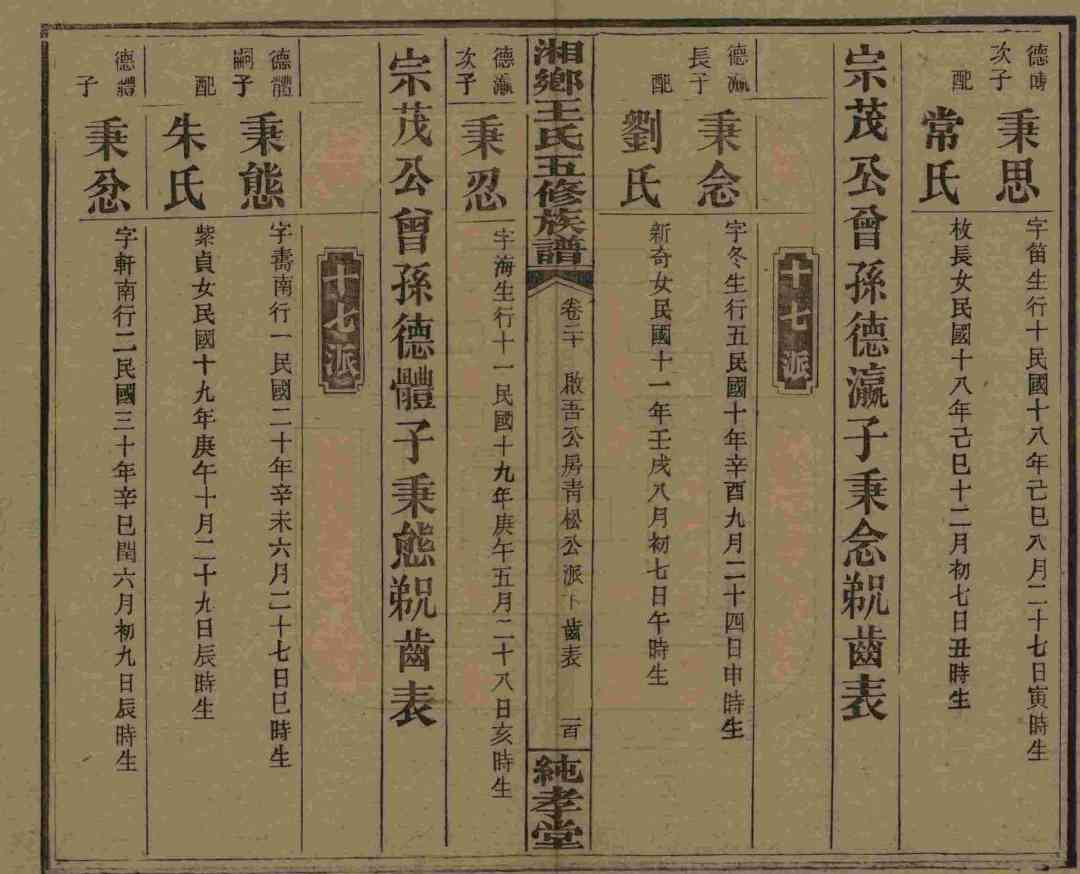 德時
次子
秉思
字笛生行十民國十八年己巳八月二十七日寅時生
配
常氏
枚長女民國十八年己巳十二月初七日丑時生
宗茂公曾孫德瀛子秉念覜齒表
十七派
德瀛
長子
秉念
字冬生行五民國十年辛酉九月二十四日申時生
配
劉氏
新奇女民國十一年壬戌八月初七日午時生
湘鄉王氏五修族譜
卷二十
啟吾公房青松公派下齒表
一百
純孝堂
德瀛
次子
秉忍
字海生行十一民國十九年庚午五月二十八日亥時生
宗茂公曾孫德體子秉態覜齒表
十七派
德體
嗣子
秉態
字壽南行一民國二十年辛未六月二十七日巳時生
配
朱氏
紫貞女民國十九年庚午十月二十九日辰時生
德體
子
秉忿
字軒南行二民國三十年辛巳閏六月初九日辰時生